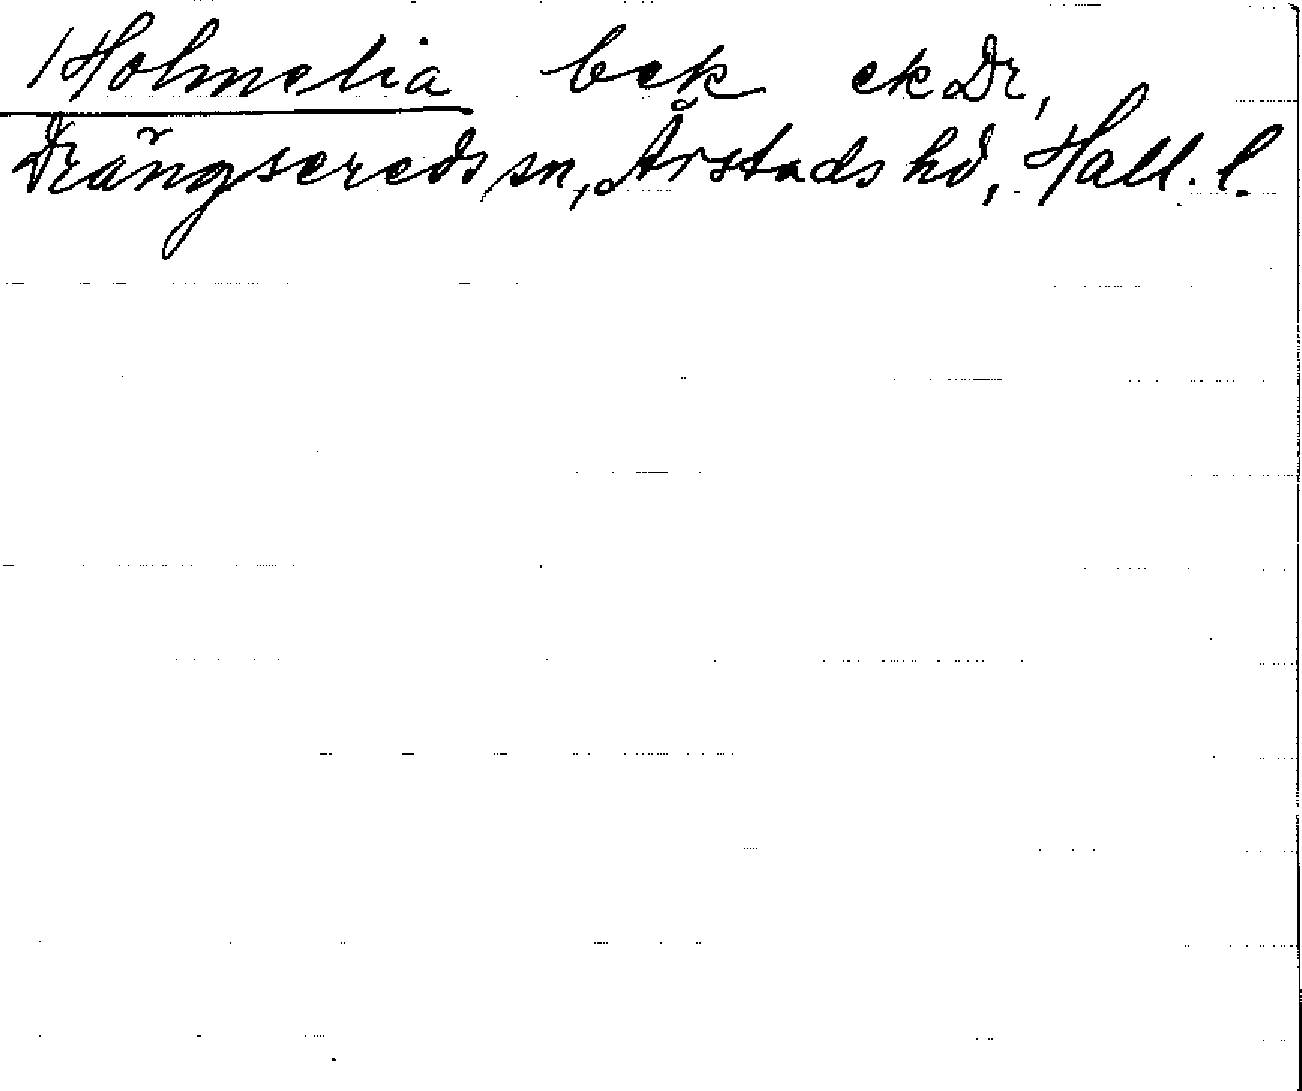 Holmelia bek ekDr,
Drängsereds sn, Årstads hd, Hall. l.